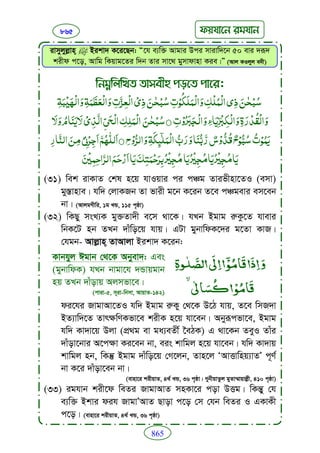 ৮৬৫
ফয়যানে রমযান
রাসুলুল্লাহ্ ﷺ ইরশাদ করেছেন: “যে ব্যক্তি আমার উপর সারাদিনে ৫০ বার দরূদ
শরীফ পড়ে, আমি কিয়ামতের দিন তার সাথে মুসাফাহা করব।” (আল কওলুল বদী)
নিম্নলিখিত তাসবীহ পড়তে পারে:
سُبْحٰنَ ذِی الْمُلْكِ وَالْمَلَكُوْتِ ○ سُبْحٰنَ ذِی الْعِزَّةِ وَالْعَظَمَةِ وَالْهَیْبَةِ
وَالْقُدْرَةِ وَالْكِبْرِیَآءِ وَالْجَبَرُوْتِ ○ سُبْحٰنَ الْمَلِكِ الْحَیِّ الَّذِیْ لَا یَنَامُ وَلَا
یَمُوْتُ سُبُّوْحٌ قُدُّوْسٌ رَبُّنَا وَرَبُّ الْمَلٰٓئِكَةِ وَالرُّوْحِ ○ اَللّٰهُمَّ اَجِرْنِیْ مِنَ النَّارِ
یَا مُجِیْرُ یَا مُجِیْرُ یَا مُجِیْرُ بِرَحْمَتِكَ یَا اَرْحَمَ الرَّاحِمِیْنَ
(৩১) বিশ রাকাত শেষ হয়ে যাওয়ার পর পঞ্চম তারভীহাতেও (বসা)
মুস্তাহাব। যদি লোকজন তা ভারী মনে করেন তবে পঞ্চমবার বসবেন
না। (আলমগীরি, ১ম খন্ড, ১১৫ পৃষ্ঠা)
(৩২) কিছু সংখ্যক মুক্তাদী বসে থাকে। যখন ইমাম রুকূতে যাবার
নিকটে হন তখন দাঁড়িয়ে যায়। এটা মুনাফিকদের মতো কাজ।
যেমন- আল্লাহ্ তাআলা ইরশাদ করেন:
কানযুল ঈমান থেকে অনুবাদ: এবং
(মুনাফিক) যখন নামাযে দন্ডায়মান
হয় তখন দাঁড়ায় অলসভাবে।
(পারা-৫, সূরা-নিসা, আয়াত-১৪২)
وَاِذَا قَامُوْۤا اِلَی الصَّلٰوةِ
قَامُوْا كُسَالٰی ۙ
ফরযের জামাআতেও যদি ইমাম রুকু থেকে উঠে যায়, তবে সিজদা
ইত্যাদিতে তাৎক্ষণিকভাবে শরীক হয়ে যাবেন। অনুরূপভাবে, ইমাম
যদি কাদায়ে উলা (প্রথম বা মধ্যবর্তী বৈঠক) এ থাকেন তবুও তাঁর
দাঁড়ানোর অপেক্ষা করবেন না, বরং শামিল হয়ে যাবেন। যদি কাদায়
শামিল হন, কিন্তু ইমাম দাঁড়িয়ে গেলেন, তাহলে ‘আত্তাহিয়্যাত’ পূর্ণ
না করে দাঁড়াবেন না।
(বাহারে শরীয়াত, ৪র্থ খন্ড, ৩৬ পৃষ্ঠা। গুনীয়াতুল মুতাম্মাল্লী, ৪১০ পৃষ্ঠা)
(৩৩) রমযান শরীফে বিতর জামাআত সহকারে পড়া উত্তম। কিন্তু যে
ব্যক্তি ইশার ফরয জামা'আত ছাড়া পড়ে সে যেন বিতর ও একাকী
পড়ে। (বাহারে শরীয়াত, ৪র্থ খন্ড, ৩৬ পৃষ্ঠা)
865